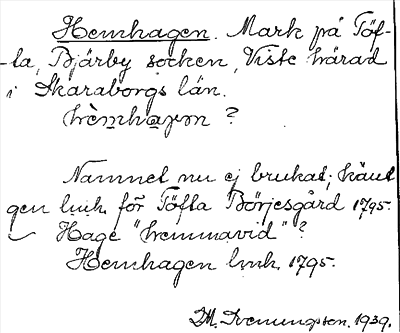 Hemhagen. Mark på Töf-
-la, Bjärby socken, Viste härad
i Skaraborgs län.
hèmhagen ?
Namnet nu ej brukat; känt
gen lmh. för Töfta Börjesgård 1795.
Hage "hemmavid" ?
Hemhagen lmh. 1795.
1939.